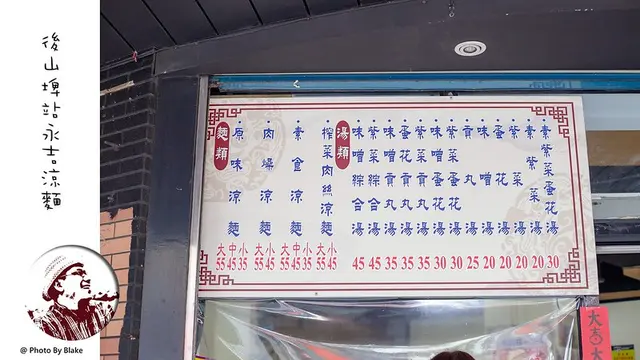 後山埤站永吉涼麵
麵類
原味涼麵
大55 中45 小35
肉燥涼麵
大55 小45
素食涼麵
大55 中45 小35
榨菜肉絲涼麵
大55 小45
湯類
味噌綜合湯 45
紫菜綜合湯 45
味噌貢丸湯 35
紫菜貢丸湯 35
蛋花貢丸湯 35
味噌蛋花湯 30
紫菜蛋花湯 30
貢丸湯 25
味噌湯 20
蛋花湯 20
紫菜湯 20
素紫菜湯 20
素紫菜蛋花湯 30
大吉
@ Photo By Blake